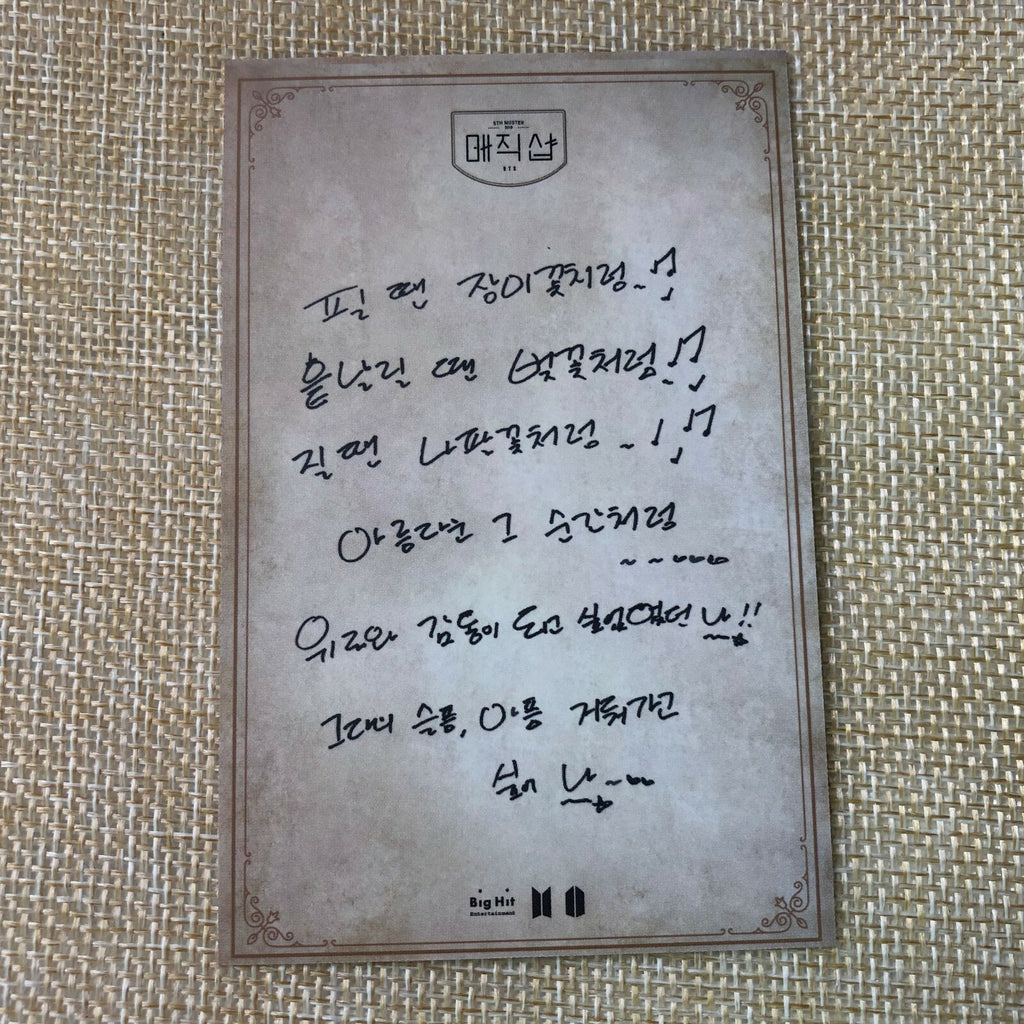 5TH MUSTER
2019
매직샵
BTS
필 땐 장미꽃처럼~♫
흩날릴 땐 벚꽃처럼♪♫
질 땐 나팔꽃처럼~♩♫
아름다운 그 순간처럼
~~
위로와 감동이 되고 싶었었던 나!!
그대의 슬픔, 아픔 거둬가고
싶어 나~
Big Hit
Entertainment